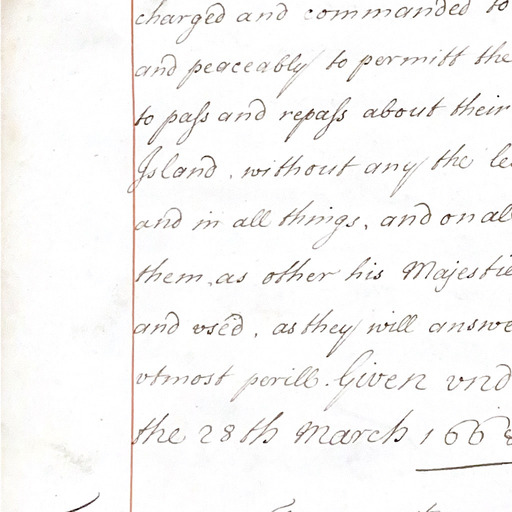 charged and commanded to
and peaceably to permitt the
to paſs and repaſs about their
Island, without any the le
and in all things, and on al
them, as other his Majestie
and vsed, as they will answe
vtmost perill. Given vnd
the 28th March 1668